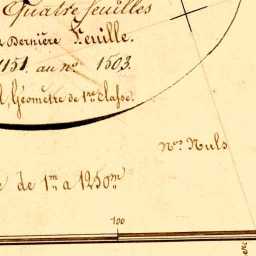 Quatre feuilles
Dernière Feuille.
1151. au nº. 1503.
Géomètre de 1re classe.
Nºs Nuls
de 1m a 1250m
100